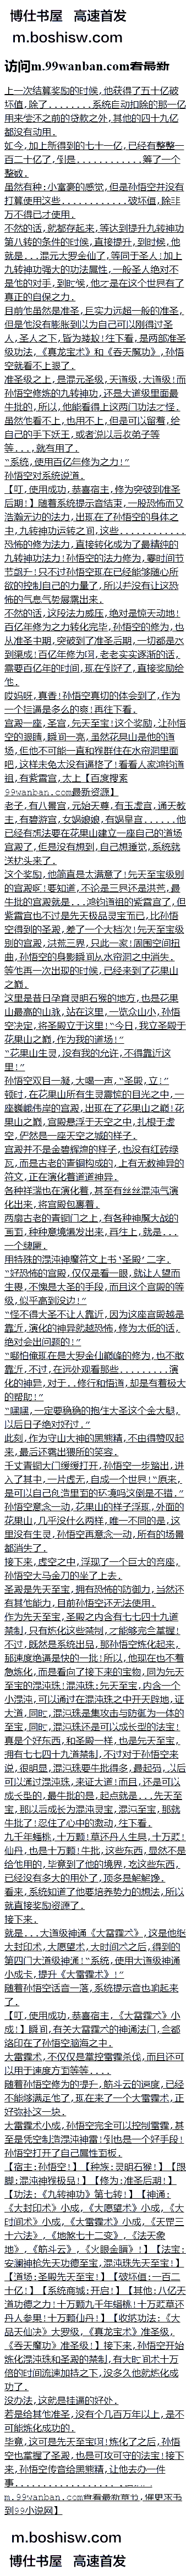 博仕书屋 高速首发
m.boshisw.com
访问m.99wanban.com看最新
上一次结算奖励的时候,他获得了五十亿破
坏值,除了........系统自动扣除的那一亿
用来偿还之前的贷款之外,其他的四十九亿
都没有动用。
如今,加上新得到的七十一亿,已经有整整一
百二十亿了,引是............筹了一个
整数。
虽然有种:小富豪的感觉,但是孙悟空并没有
打算使用这些............破坏值,除非
万不得已才使用。
不然的话,就都存起来,等达到提升九转神功
第八转的条件的时候,直接提升,到时候,他
就是...混元大罗金仙了,等同于圣人!加上
九转神功强大的功法属性,一般圣人绝对不
是他的对手,到时候,他才是在这个世界有了
真正的自保之力。
目前他虽然是准圣,且实力远超一般的准圣,
但是他没有膨胀到以为自己可以刚得过圣
人,圣人之下,皆为蝼蚁!往下看,是两部准圣
级功法,《真龙宝术》和《吞天魔功》,孙悟
空就看不上眼了。
准圣级之上,是混元圣级,天道级,大道级!而
孙悟空修炼的九转神功,还是大道级里面最
牛批的,所以,他能看得上这两门功法才怪。
虽然他看不上,也用不上,但是可以留着,给
自己的手下妖王,或者说以后收弟子等
等....就有用了.
“系统,使用百亿年修为之力!”
孙悟空对系统说道。
【叮,使用成功,恭喜宿主,修为突破到准圣
后期!】随着系统提示音结束,一股恐怖而又
浩瀚无边的法力,出现在了孙悟空的身体之
中,九转神功运转之间,这些............
恐怖的修为法力,直接转化成为了最精纯的
九转神功法力!孙悟空的法力修为,霎时间节
节飙升!只不过孙悟空现在已经能够随心所
欲的控制自己的力量了,所以并没有让这恐
怖的气息气势展露出来.
不然的话,这段法力威压,绝对是惊天动地!
百亿年修为之力转化完毕,孙悟空的修为,也
从准圣中期,突破到了准圣后期,一切都是水
到渠成!百亿年修为啊,老老实实潜修的话,
需要百亿年的时间,现在引好了,直接奖励给
他.
哎妈呀,真香!孙悟空真切的体会到了,作为
一个挂逼是多么的爽!再往下看。
宫殿一座,圣宫,先天至宝!这个奖励,让孙悟
空的眼睛,瞬间一亮,虽然花果山是他的道
场,但他不可能一直和猴群住在水帘洞里面
吧,这样未免太没有逼格了!看看人家鸿钧道
祖,有紫霄宫,太上【百度搜索
99wanban.com最新资源】
老子,有八景宫,元始天尊,有玉虚宫,通天教
主,有碧游宫,女娲娘娘,有娲皇宫......他
已经有想法要在花果山建立一座自己的道场
宫殿了,但是没有想到,自己想睡觉,系统就
送枕头来了。
这个奖励,他简直是太满意了!先天至宝级别
的宫殿啊!要知道,不论是三界还是洪荒,最
牛批的宫殿就是...鸿钧道祖的紫霄宫了,但
紫霄宫也不过是先天极品灵宝而已,比孙悟
空得到的圣殿,差了一个大档次!先天至宝级
别的宫殿,洪荒三界,只此一家!周围空间扭
曲,孙悟空的身影瞬间从水帘洞之中消失.
等他再一次出现的时候,已经来到了花果山
之巅.
这里是昔日孕育灵明石猴的地方,也是花果
山最高的山脉,站在这里,一览众山小,孙悟
空决定,将圣殿立于这里!“今日,我立圣殿于
花果山之巅,作为我的道场!”
“花果山生灵,没有我的允许,不得靠近这
里!”
孙悟空双目一凝,大喝一声,“圣殿,立!”
顿时,在花果山所有生灵震惊的目光之中,一
座巍峨伟岸的宫殿,出现在了花果山之巅!花
果山之巅,宫殿悬浮于天空之中,扎根于虚
空,俨然是一座天空之城的样子.
宫殿并不是金碧辉煌的样子,也没有红砖绿
瓦,而是古老的青铜构成的,上有无数神异的
符文,正在演化着道道神异.
各种祥瑞也在演化着,甚至有丝丝混沌气演
化出来,将宫殿包裹着.
两扇古老的青铜门之上,有各种神魔大战的
画面,种种意境满发出来,再往上,就是...
一个牌匾.
用特殊的混沌神魔符文上书‘圣殿’二字.
“好恐怖的宫殿,仅仅是看一眼,就让人望而
生畏,不愧是大圣的手段,而且这个宫殿的等
级,似乎高到没边!”
“怪不得大圣不让人靠近,因为这座宫殿越是
靠近,演化的神异就越恐怖,修为太低的话,
绝对会出问题的!”
“哪怕俺现在是大罗金仙巅峰的修为,也不敢
靠近,不过,在远处观看那些.........演
化的神异,对于..修行和悟道,却是有着极大
的帮助!”
“嘿嘿,一定要稳稳的抱住大圣这个金大腿,
以后日子绝对好过.”
此刻,作为守山大神的黑熊精,不由得赞叹起
来,最后还露出猥琐的笑容.
千丈青铜大门缓缓打开,孙悟空一步踏出,进
入了其中,一片虚无,自成一个世界!“原来,
是可以自己创造里面的环境吗这倒是不错.”
孙悟空意念一动,花果山的样子浮现,外面的
花果山,几乎没什么两样,唯一不同的是,这
里没有生灵,孙悟空再意念一动,所有的场景
都消失了.
接下来,虚空之中,浮现了一个巨大的宫座,
孙悟空大马金刀的坐了上去.
圣殿是先天至宝,拥有恐怖的防御力,当然还
有其他能力,目前孙悟空还无法使用.
作为先天至宝,圣殿之内含有七七四十九道
禁制,只有炼化这些禁制,才能够完全掌握!
不过,既然是系统出品,那孙悟空炼化起来,
那速度绝逼是快的一批!所以,他现在也不着
急炼化,而是看向了接下来的宝物,同为先天
至宝的混沌珠!混沌珠:先天至宝,内含一个
小混沌,可以通过在混沌珠之中开天辟地,证
大道,同时,混沌珠是集攻击与防御为一体的
至宝,同时,混沌珠还是可以成长型的法宝!
真是个好东西,和圣殿一样,也是先天至宝,
拥有七七四十九道禁制,不过对于孙悟空来
说,很明显,混沌珠要牛批得多,最起码,以后
可以通过混沌珠,来证大道!而且,还是可以
成长型的,最牛批的是,起点就是...先天至
宝,那以后成长为混沌灵宝,混沌至宝,那就
牛批了!忍住了心中的激动,往下看.
九千年蟠桃,十万颗!草还丹人生果,十万颗!
仙丹,也是十万颗!牛批,这些东西,显然不是
给他用的,毕竟到了他的境界,吃这些东西,
已经没有多大的用处了,顶多是解解馋.
看来,系统知道了他要培养势力的想法,所以
就直接奖励资源了.
接下来,
就是...大道级神通《大雷霆术》,这是他继
大封印术,大愿望术,大时间术之后,得到的
第四门大道级神通!“系统,使用大道级神通
小成卡,提升《大雷霆术》!”
随着孙悟空话音一落,系统提示音也响起来
了.
【叮,使用成功,恭喜宿主,《大雷霆术》小
成!】瞬间,有关大雷霆术的神通法门,全都
烙印在了孙悟空脑海之中.
大雷霆术,不仅仅是掌控雷霆杀伐,而且还可
以用于速度方面等等....
随着孙悟空修为的提升,筋斗云的速度,已经
不能够满足他了,现在来了一个大雷霆术,正
好弥补这一块.
大雷霆术小成,孙悟空完全可以控制雷霆,甚
至是凭空制造混沌神雷!引也是一个好手段!
孙悟空打开了自己属性面板.
【宿主:孙悟空!】【种族:灵明石猴!】【跟
脚:混沌神猴极品!】【修为:准圣后期!】
【功法:《九转神功》第七转!】【神通:
《大封印术》小成,《大愿望术》小成,《大
时间术》小成,《大雷霆术》小成,《天罡三
十六法》,《地煞七十二变》,《法天象
地》,《筋斗云》,《火眼金睛》!】【法宝:
安澜神枪先天功德至宝,混沌珠先天至宝!】
【道场:圣殿先天至宝!】【破坏值:一百二
十亿!】【系统商城:开启!】【其他:八亿天
道功德之力!十万颗九千年蟠桃!十万颗草还
丹人参果!十万颗仙丹!】【收纳功法:《大
品天仙决》大罗级,《真龙宝术》准圣级,
《吞天魔功》准圣级!】接下来,孙悟空开始
炼化混沌珠和圣殿的禁制,有大时间术十万
倍的时间流速加持之下,没多久他就炼化成
功了.
没办法,这就是挂逼的好处.
若是给其他准圣,没有个几百万年以上,是不
可能炼化成功的.
毕竟,这可是先天至宝啊!炼化了之后,孙悟
空也掌握了圣殿,也是可攻可守的法宝!接下
来,孙悟空传音给黑熊精,让他去办一件
事..................
m.99wanban.com查看最新章节,催更求书
到99小说网】
m.boshisw.com
博仕书屋 高速首发